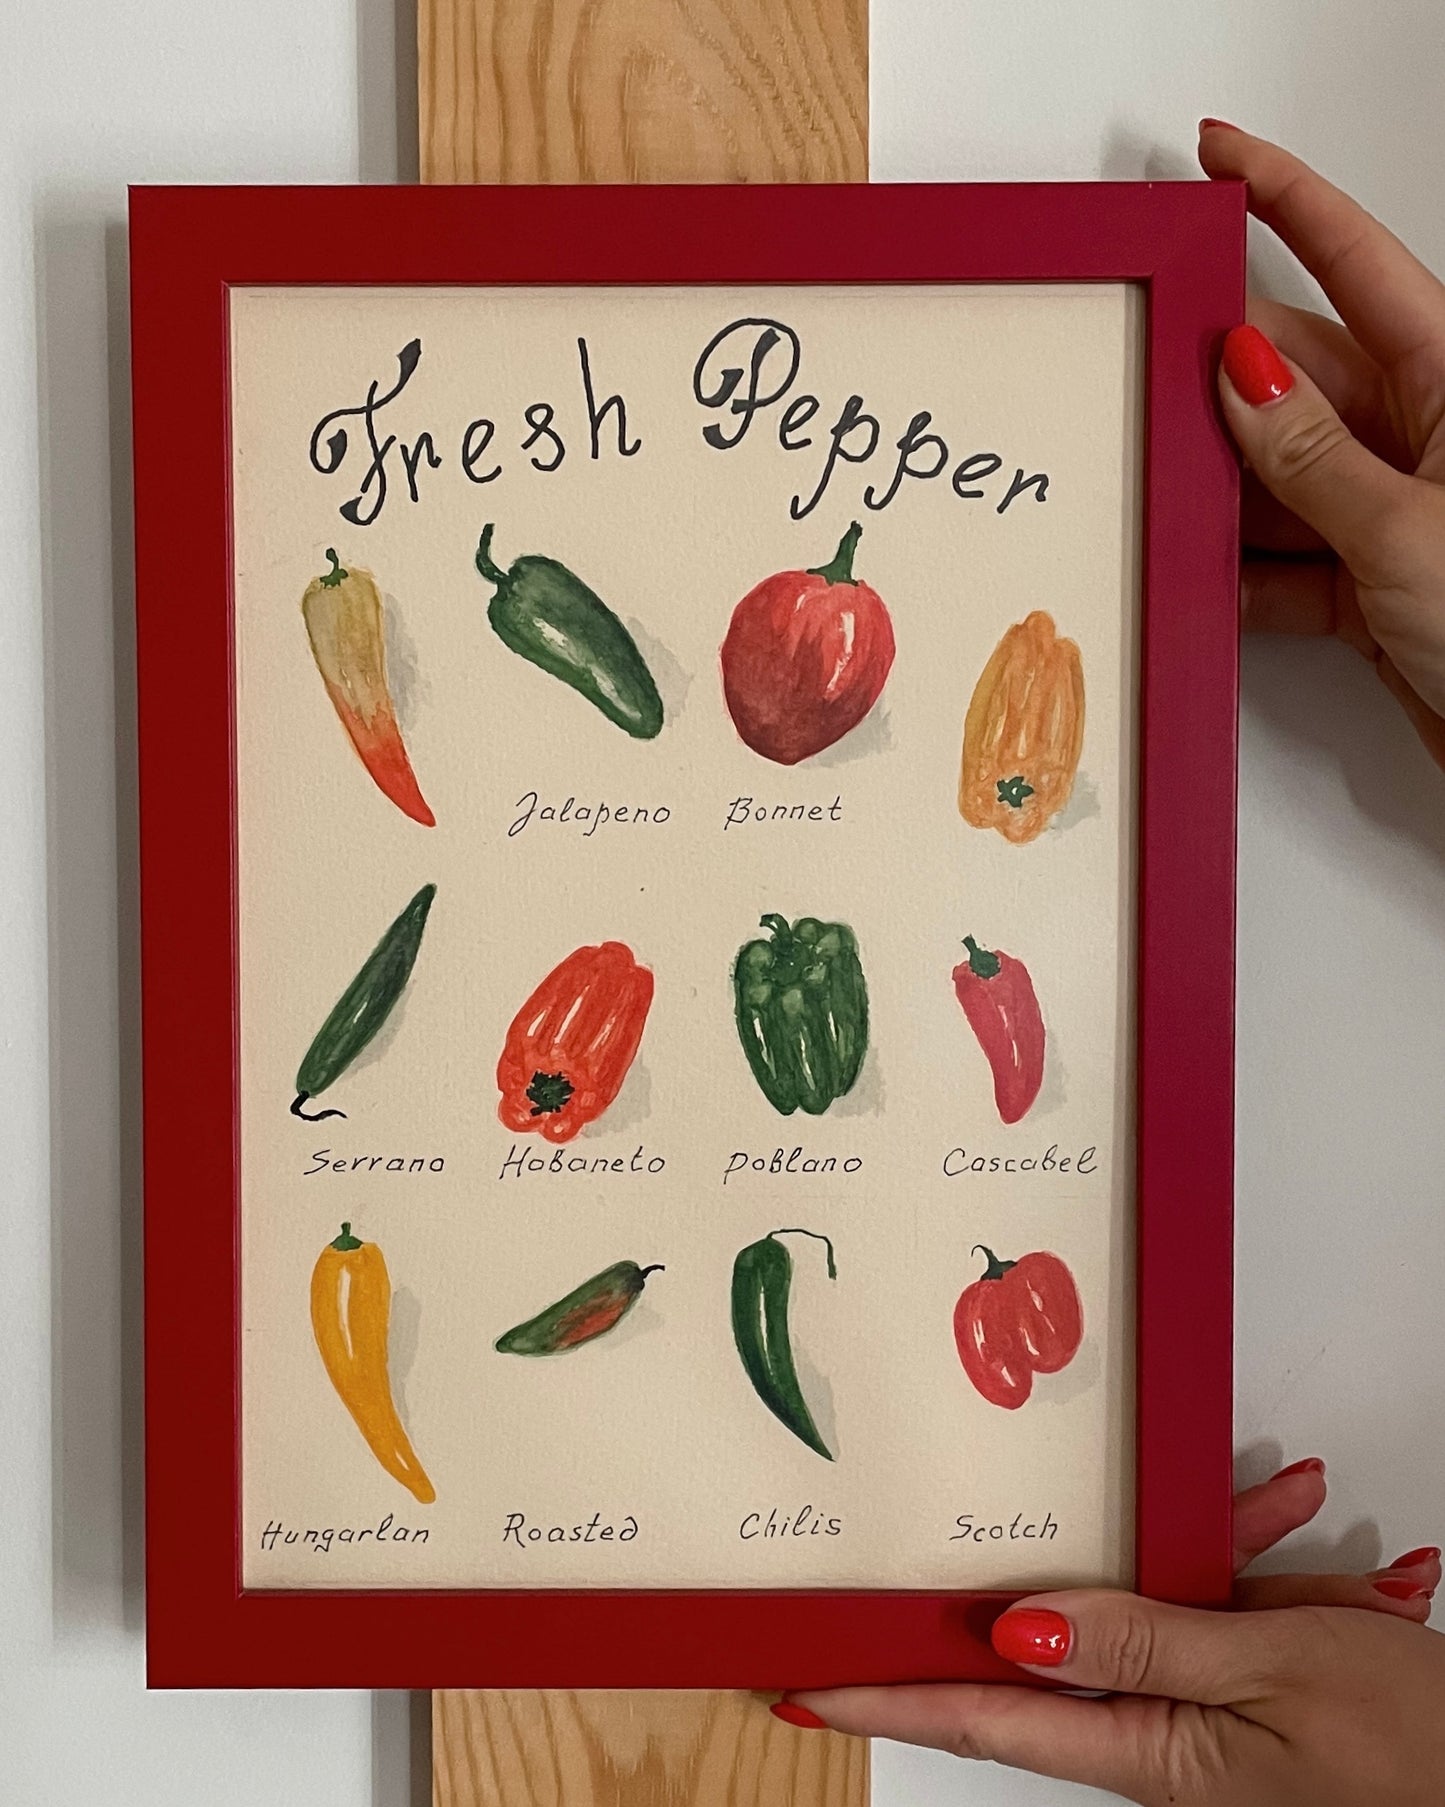 Fresh Pepper
Jalapeno Bonnet
Serrano Habaneto Poblano Cascabel
Hungarlan Roasted Chilis Scotch